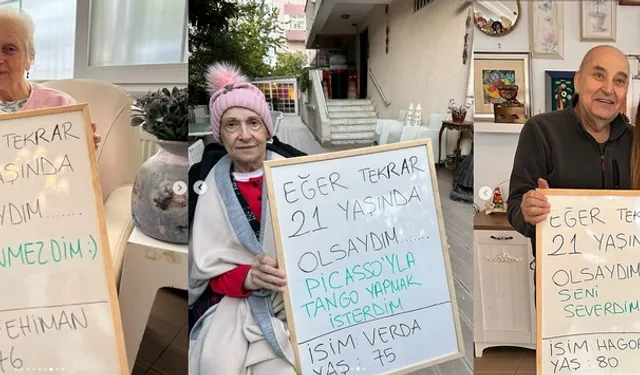 TEKRAR
AŞINDA
YDIM.......
NMEZDİM:)
FEHİMAN
76
EĞER TEKRAR
21 YAŞINDA
OLSAYDIM......
PİCASSO'YLA
TANGO YAPMAK
İSTERDİM
İSİM VERDA
YAŞ : 75
EĞER TEKRAR
21 YAŞINDA
OLSAYDIM
SENİ
SEVERDİM
İSİM HAGOP
YAŞ : 80